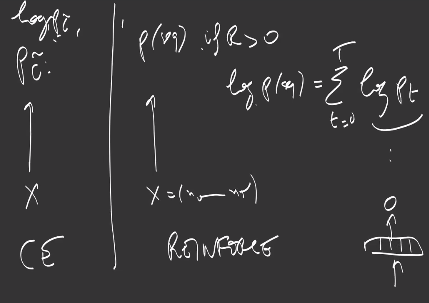 log p_c̃,
p_c̃.
↑
X
CE
p(y) if R > 0
log p(y) = Σ_{t=0}^{T} log p_t
↑
X = (x₀ — x_T)
REINFORCE
⋮
O
↑
↑